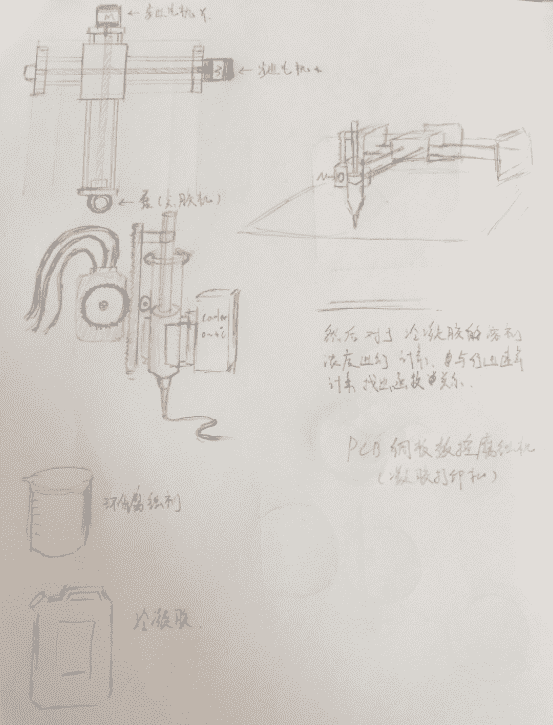 ← 步进电机 X
← 步进电机
← 泵（点胶机）
Cooler
0~4℃
然后对于冷凝胶的溶剂
浓度进行计算、并与行进速率
计算 找出函数关系.
PCB 铜板数控腐蚀机
（凝胶打印机）
环保腐蚀剂
冷凝胶